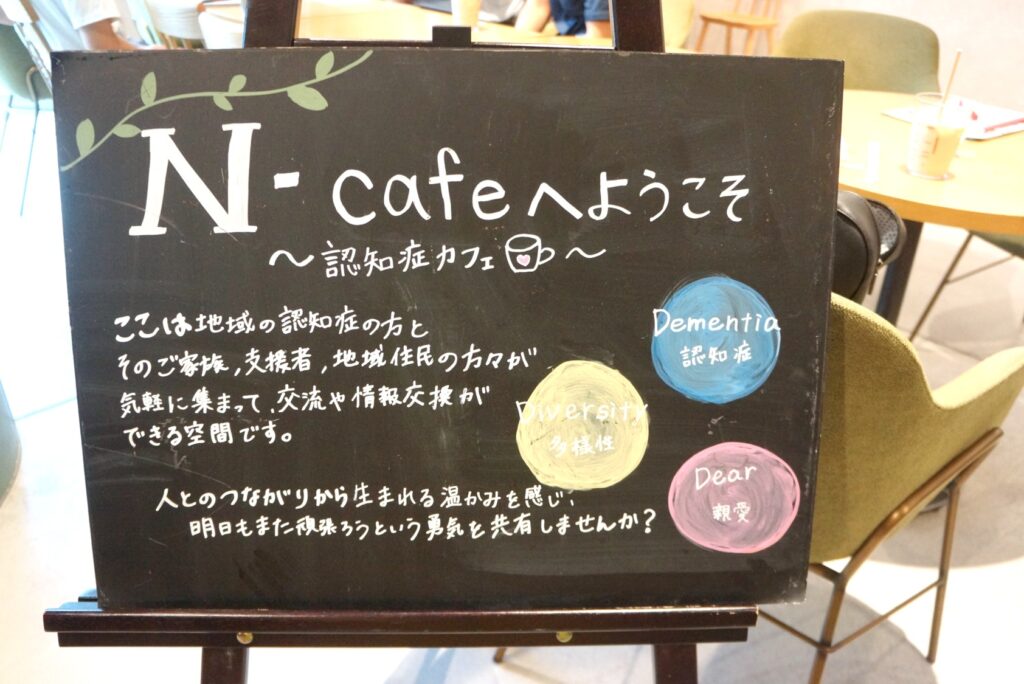 N-cafeへようこそ
～認知症カフェ～
ここは地域の認知症の方と
そのご家族,支援者,地域住民の方々が
気軽に集まって、交流や情報交換が
できる空間です。
人とのつながりから生まれる温かみを感じ、
明日もまた頑張ろうという勇気を共有しませんか?
Dementia
認知症
Diversity
多様性
Dear
親愛